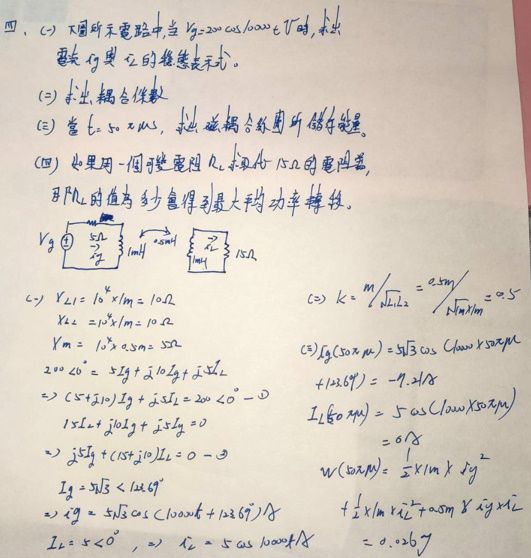 四、(一) 下圖所示電路中,當 Vg=200 cos10000t V時,求出
電流 ig 與 iL 的穩態表示式。
(二) 求出耦合係數
(三) 當 t=50πμs, 求出磁耦合線圈所儲存能量。
(四) 如果用一個可變電阻 RL 求取代 15Ω 的電阻器,
則RL的值為多少會得到最大平均功率轉移。
Vg 5Ω ig 1mH 0.5mH 1mH iL 15Ω
(一) XL1 = 10⁴×1m = 10Ω
XL2 = 10⁴×1m = 10Ω
Xm = 10⁴×0.5m = 5Ω
200<0° = 5Ig + j10Ig + j5IL
=> (5+j10)Ig + j5IL = 200<0° -①
15IL + j10Ig + j5Ig = 0
=> j5Ig + (15+j10)IL = 0 -②
Ig = 5√3 < 123.69°
=> ig = 5√3 cos(10000t + 123.69°)A
IL = 5<0°, => iL = 5 cos 10000t A
(二) K = m/√L1L2 = 0.5m/√1m×1m = 0.5
(三) Ig(50πμ) = 5√3 cos(1000×50πμ
+123.69°) = -7.21A
IL(50πμ) = 5 cos(1000×50πμ)
= 0A
W(50πμ) = 1/2×1m×ig²
+ 1/2×1m×iL² + 0.5m×ig×iL
= 0.026J